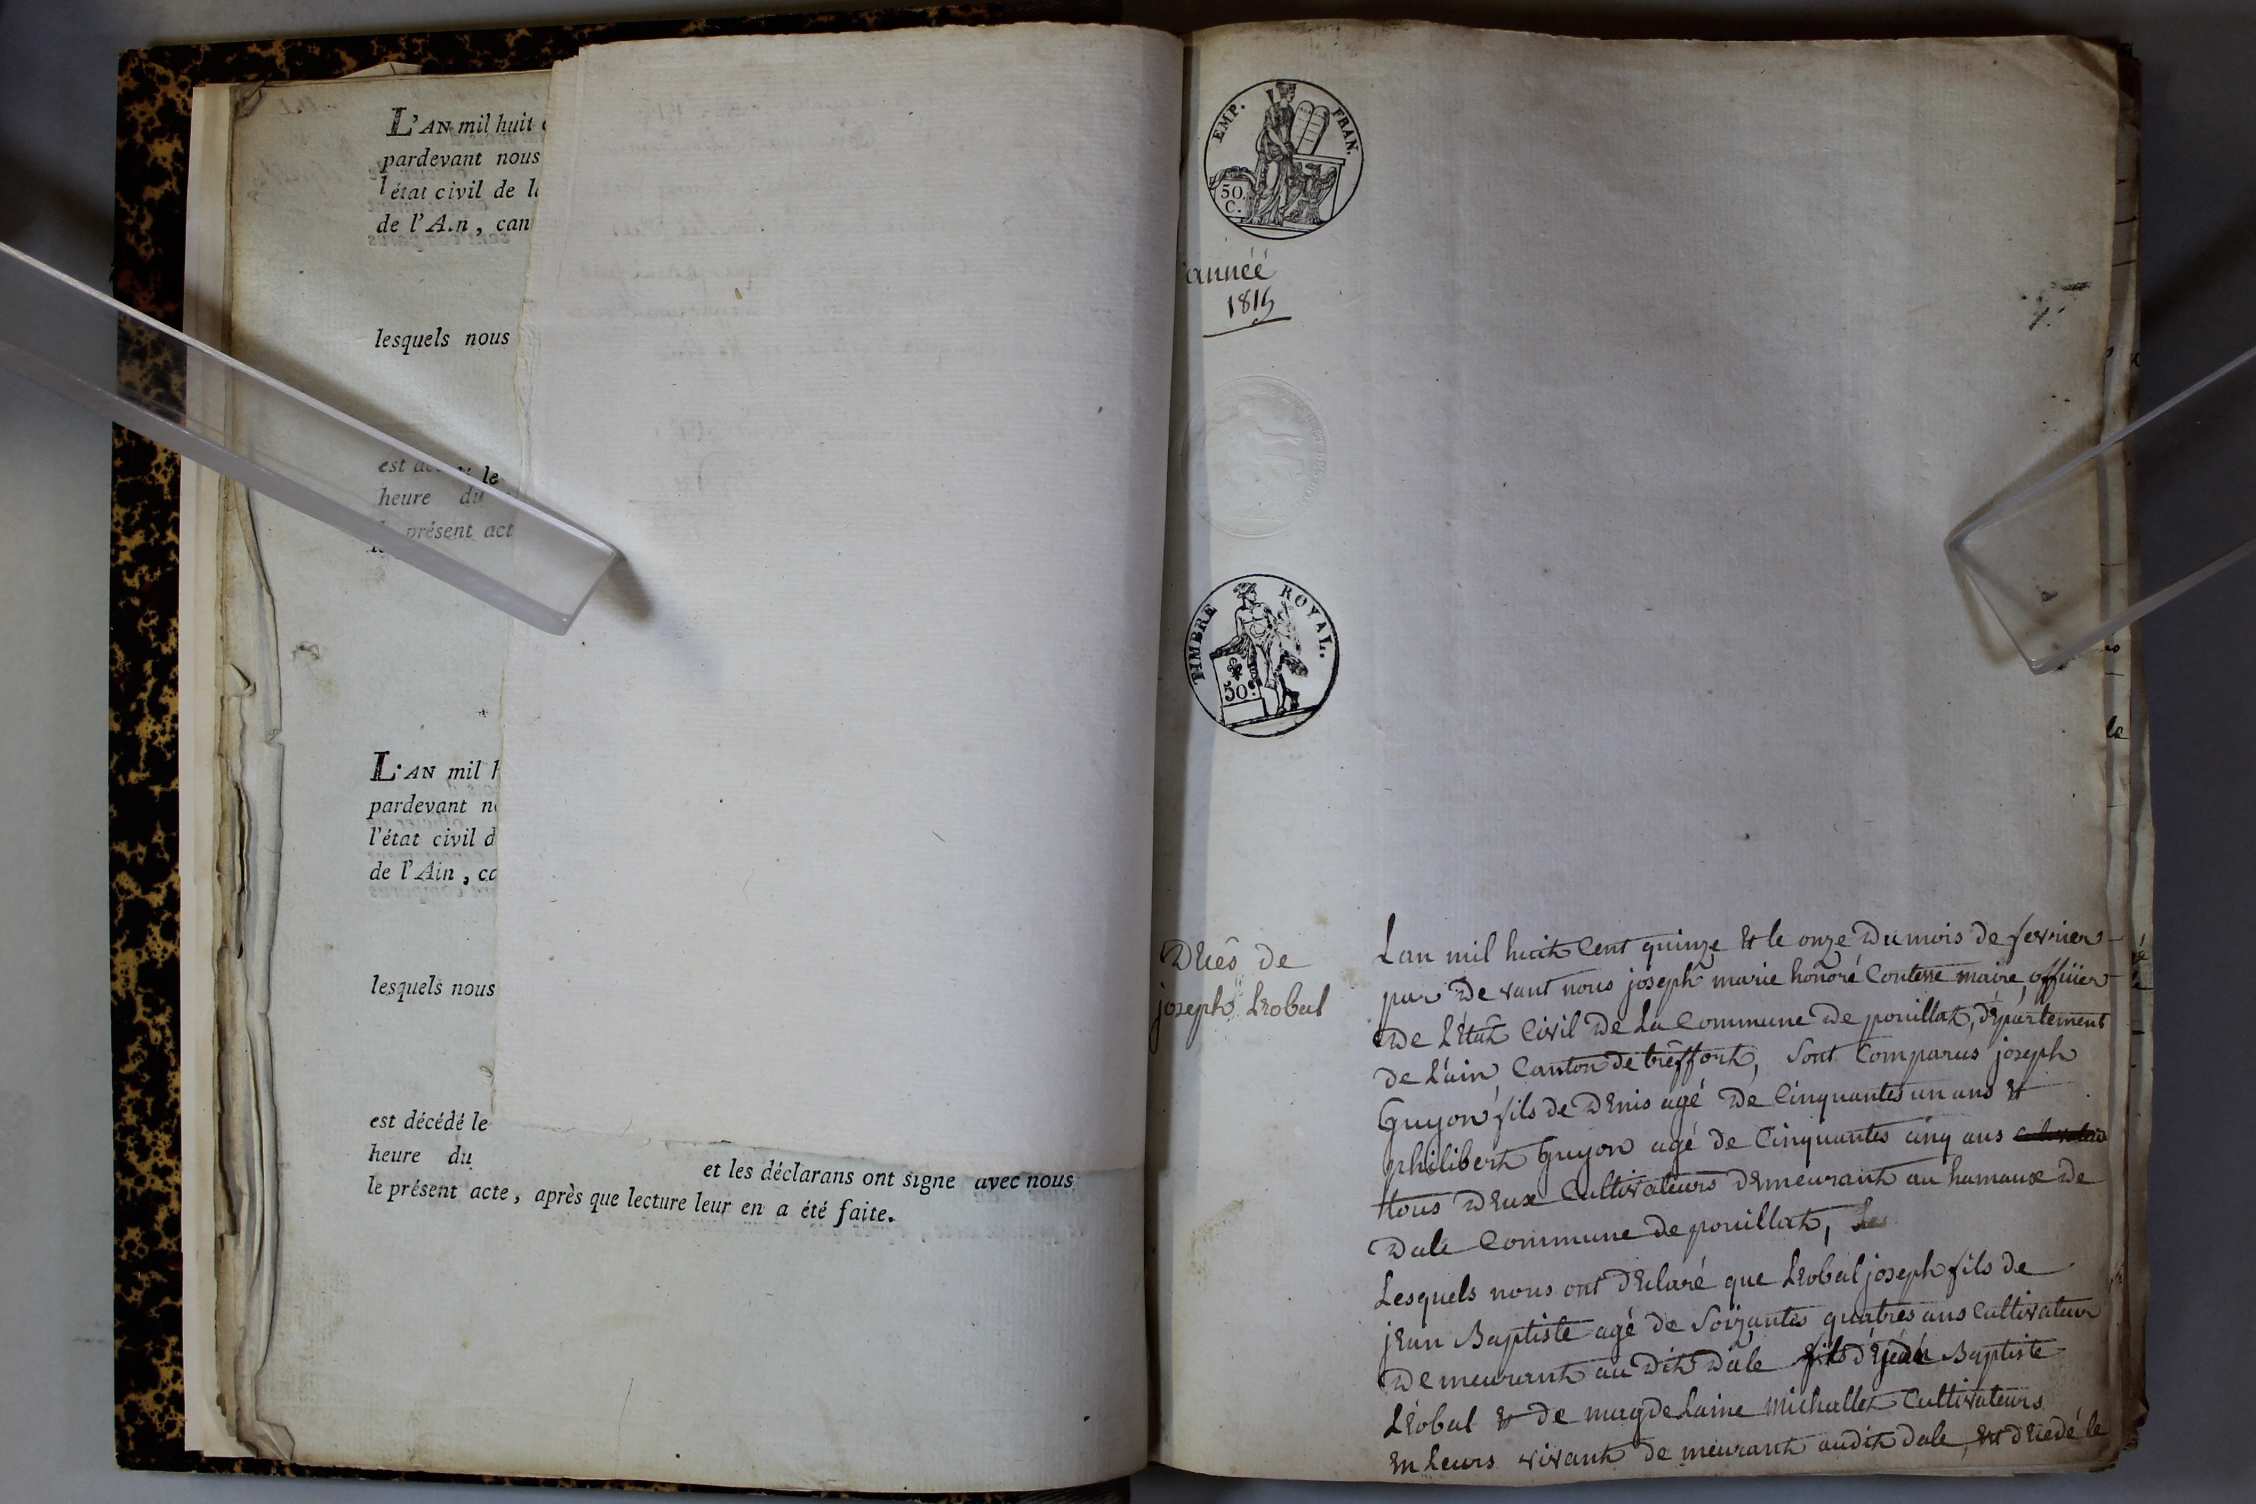 L'AN mil huit
pardevant nous
l'état civil de l
de l'Ain, can
lesquels nous
est décédé le
heure du
le présent act
L'AN mil h
pardevant n
l'état civil d
de l'Ain, ca
lesquels nous
est décédé le
heure du
et les déclarans ont signé avec nous
le présent acte, après que lecture leur en a été faite.
EMP. FRAN.
50 C.
année
1815
TIMBRE ROYAL.
50 c
Décès de
joseph Léobal
Lan mil huit Cent quinze et le onze du mois de fevrier
par devant nous joseph marie honoré Contesse maire, officier
de L'état Civil de La Commune de pouillat, département
de L'ain Canton de treffort, Sont Comparus joseph
Guyon fils de Denis agé de Cinquantes un ans et
philibert Guyon agé de Cinquantes cinq ans
tous deux Cultivateurs demeurant au hamaux de
dale Commune de pouillat, Les
Lesquels nous ont déclaré que Léobal joseph fils de
jean Baptiste agé de Soixantes quatres ans cultivateur
demeurant au dit dale fils de jean Baptiste
Léobal et de magdelaine Michallet Cultivateurs
en Leurs vivant demeurant audit dale, est décédé le